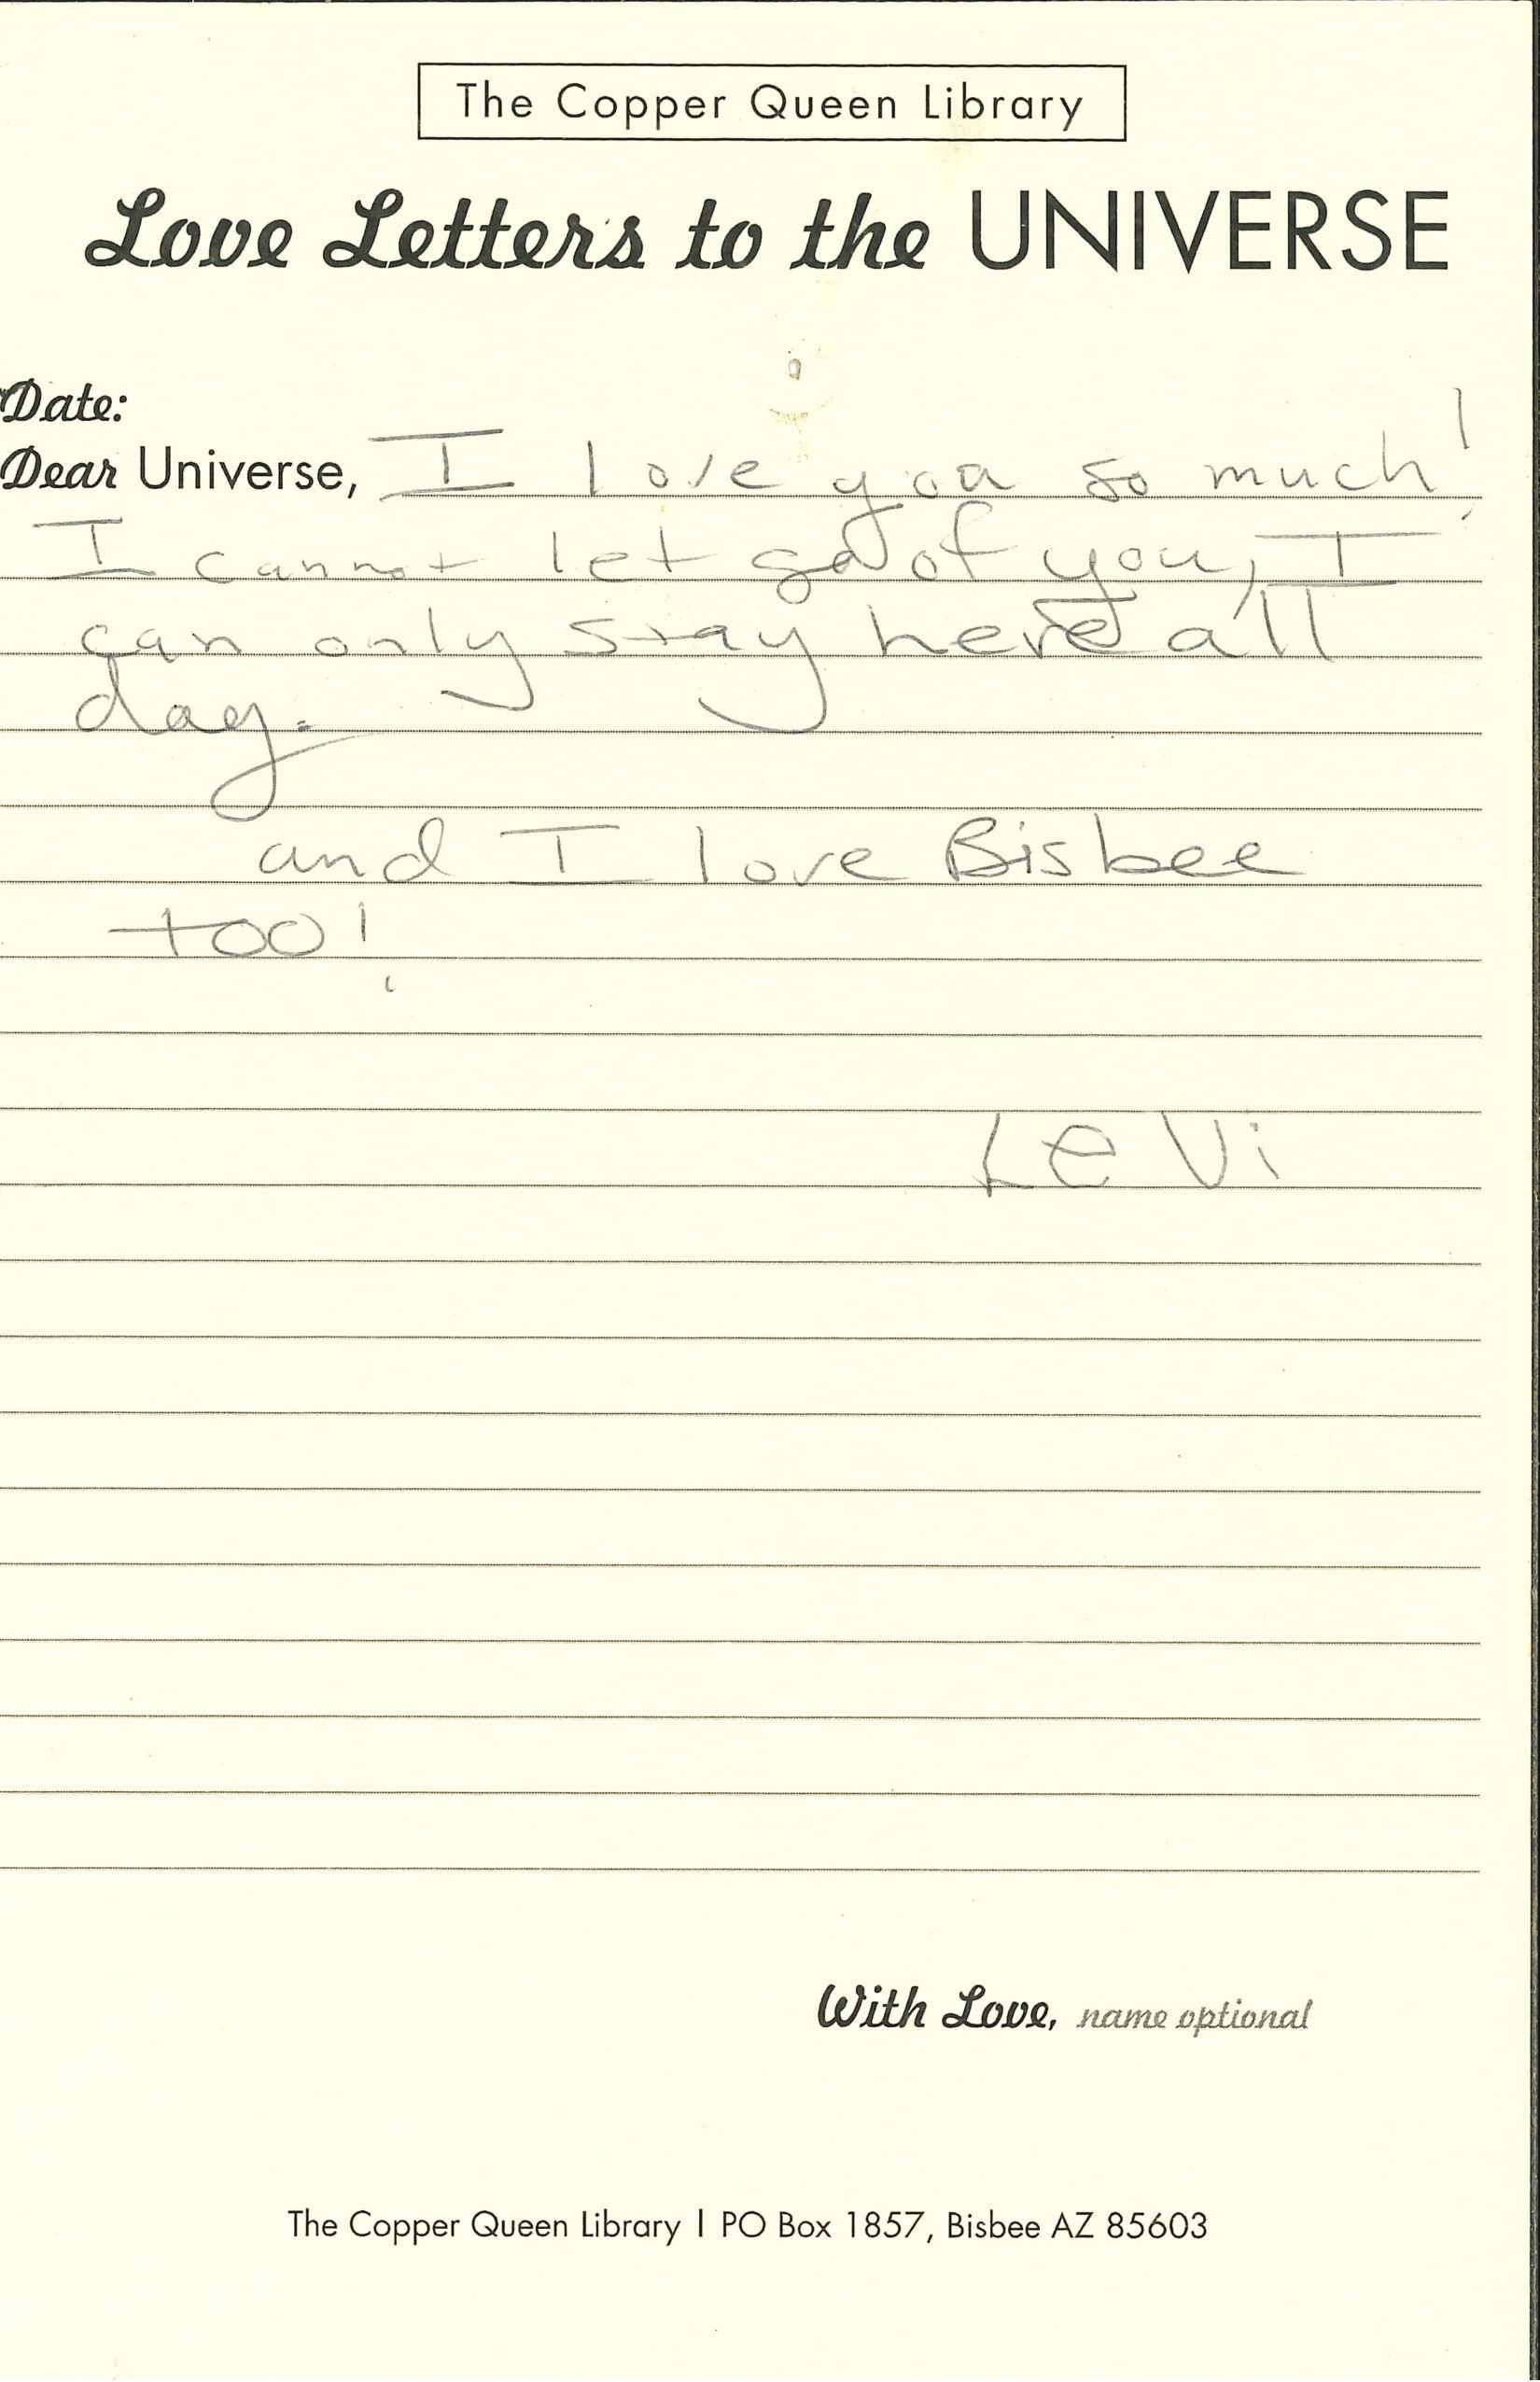 The Copper Queen Library
Love Letters to the UNIVERSE
Date:
Dear Universe, I love you so much!
I cannot let go of you, I
can only stay here all
day.
and I love Bisbee
too!
LeVi
With Love, name optional
The Copper Queen Library | PO Box 1857, Bisbee AZ 85603